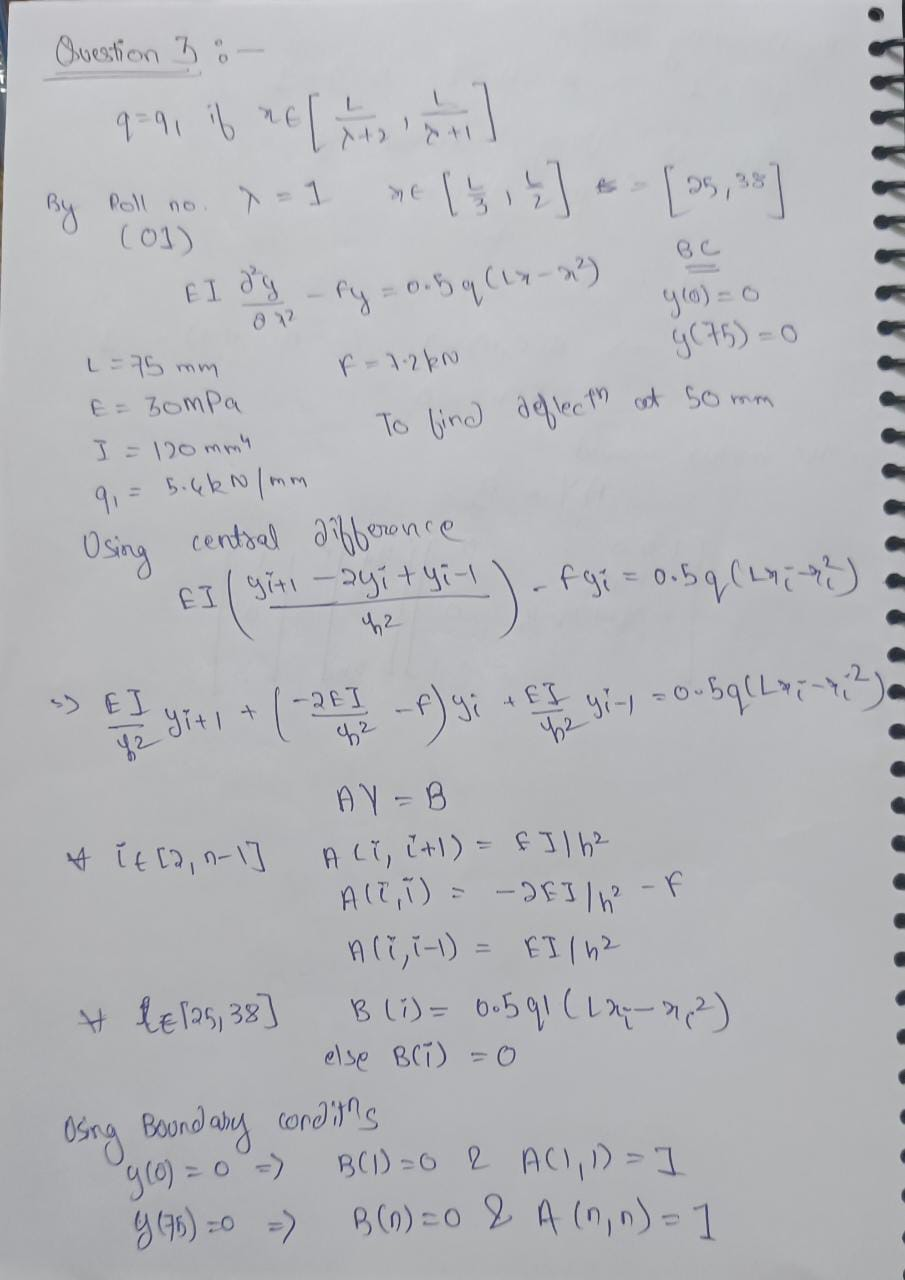 Question 3 :-
q=q₁ if x∈[L/(λ+2), L/(λ+1)]
By Roll no. λ = 1 x∈ [L/3, L/2] = [25, 38]
(01)
EI ∂²y/∂x² - Fy = 0.5q(Lx-x²)
BC
y(0)=0
y(75)=0
L = 75 mm
E = 30MPa
I = 120 mm⁴
q₁ = 5.4kN/mm
F = 7.2kN
To find deflectⁿ at 50 mm
Using central difference
EI((yi+1 - 2yi + yi-1)/h²) - Fyi = 0.5q(Lxi-xi²)
=> EI/h² yi+1 + (-2EI/h² - F)yi + EI/h² yi-1 = 0.5q(Lxi-xi²)
AY = B
∀ i∈[2, n-1] A(i, i+1) = EI/h²
A(i,i) = -2EI/h² - F
A(i,i-1) = EI/h²
∀ ∈[25,38] B(i) = 0.5q1(Lxi-xi²)
else B(i) = 0
Using Boundary conditⁿs
y(0) = 0 => B(1)=0 & A(1,1) = 1
y(75)=0 => B(n)=0 & A(n,n)=1